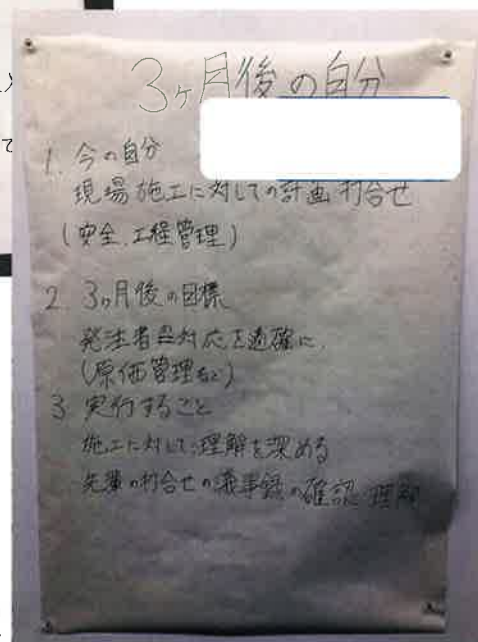 3ヶ月後の自分
1. 今の自分
現場施工に対しての計画 打合せ
(安全、工程管理)
2. 3ヶ月後の目標
発注者 対応を適確に
(原価管理など)
3. 実行すること
施工に対して理解を深める
先輩の打合せの議事録の確認 理解